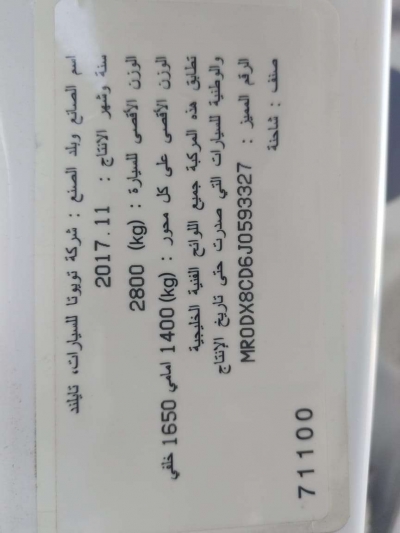 اسم الصانع وبلد الصنع : شركة تويوتا للسيارات، تايلند
سنة وشهر الانتاج : 2017.11
الوزن الأقصى للسيارة : (kg) 2800
الوزن الأقصى على كل محور : (kg) 1400 امامي 1650 خلفي
تطابق هذه المركبة جميع اللوائح الفنية الخليجية
والوطنية للسيارات التي صدرت حتى تاريخ الإنتاج
الرقم المميز : MR0DX8CD6J0593327
صنف : شاحنة
71100